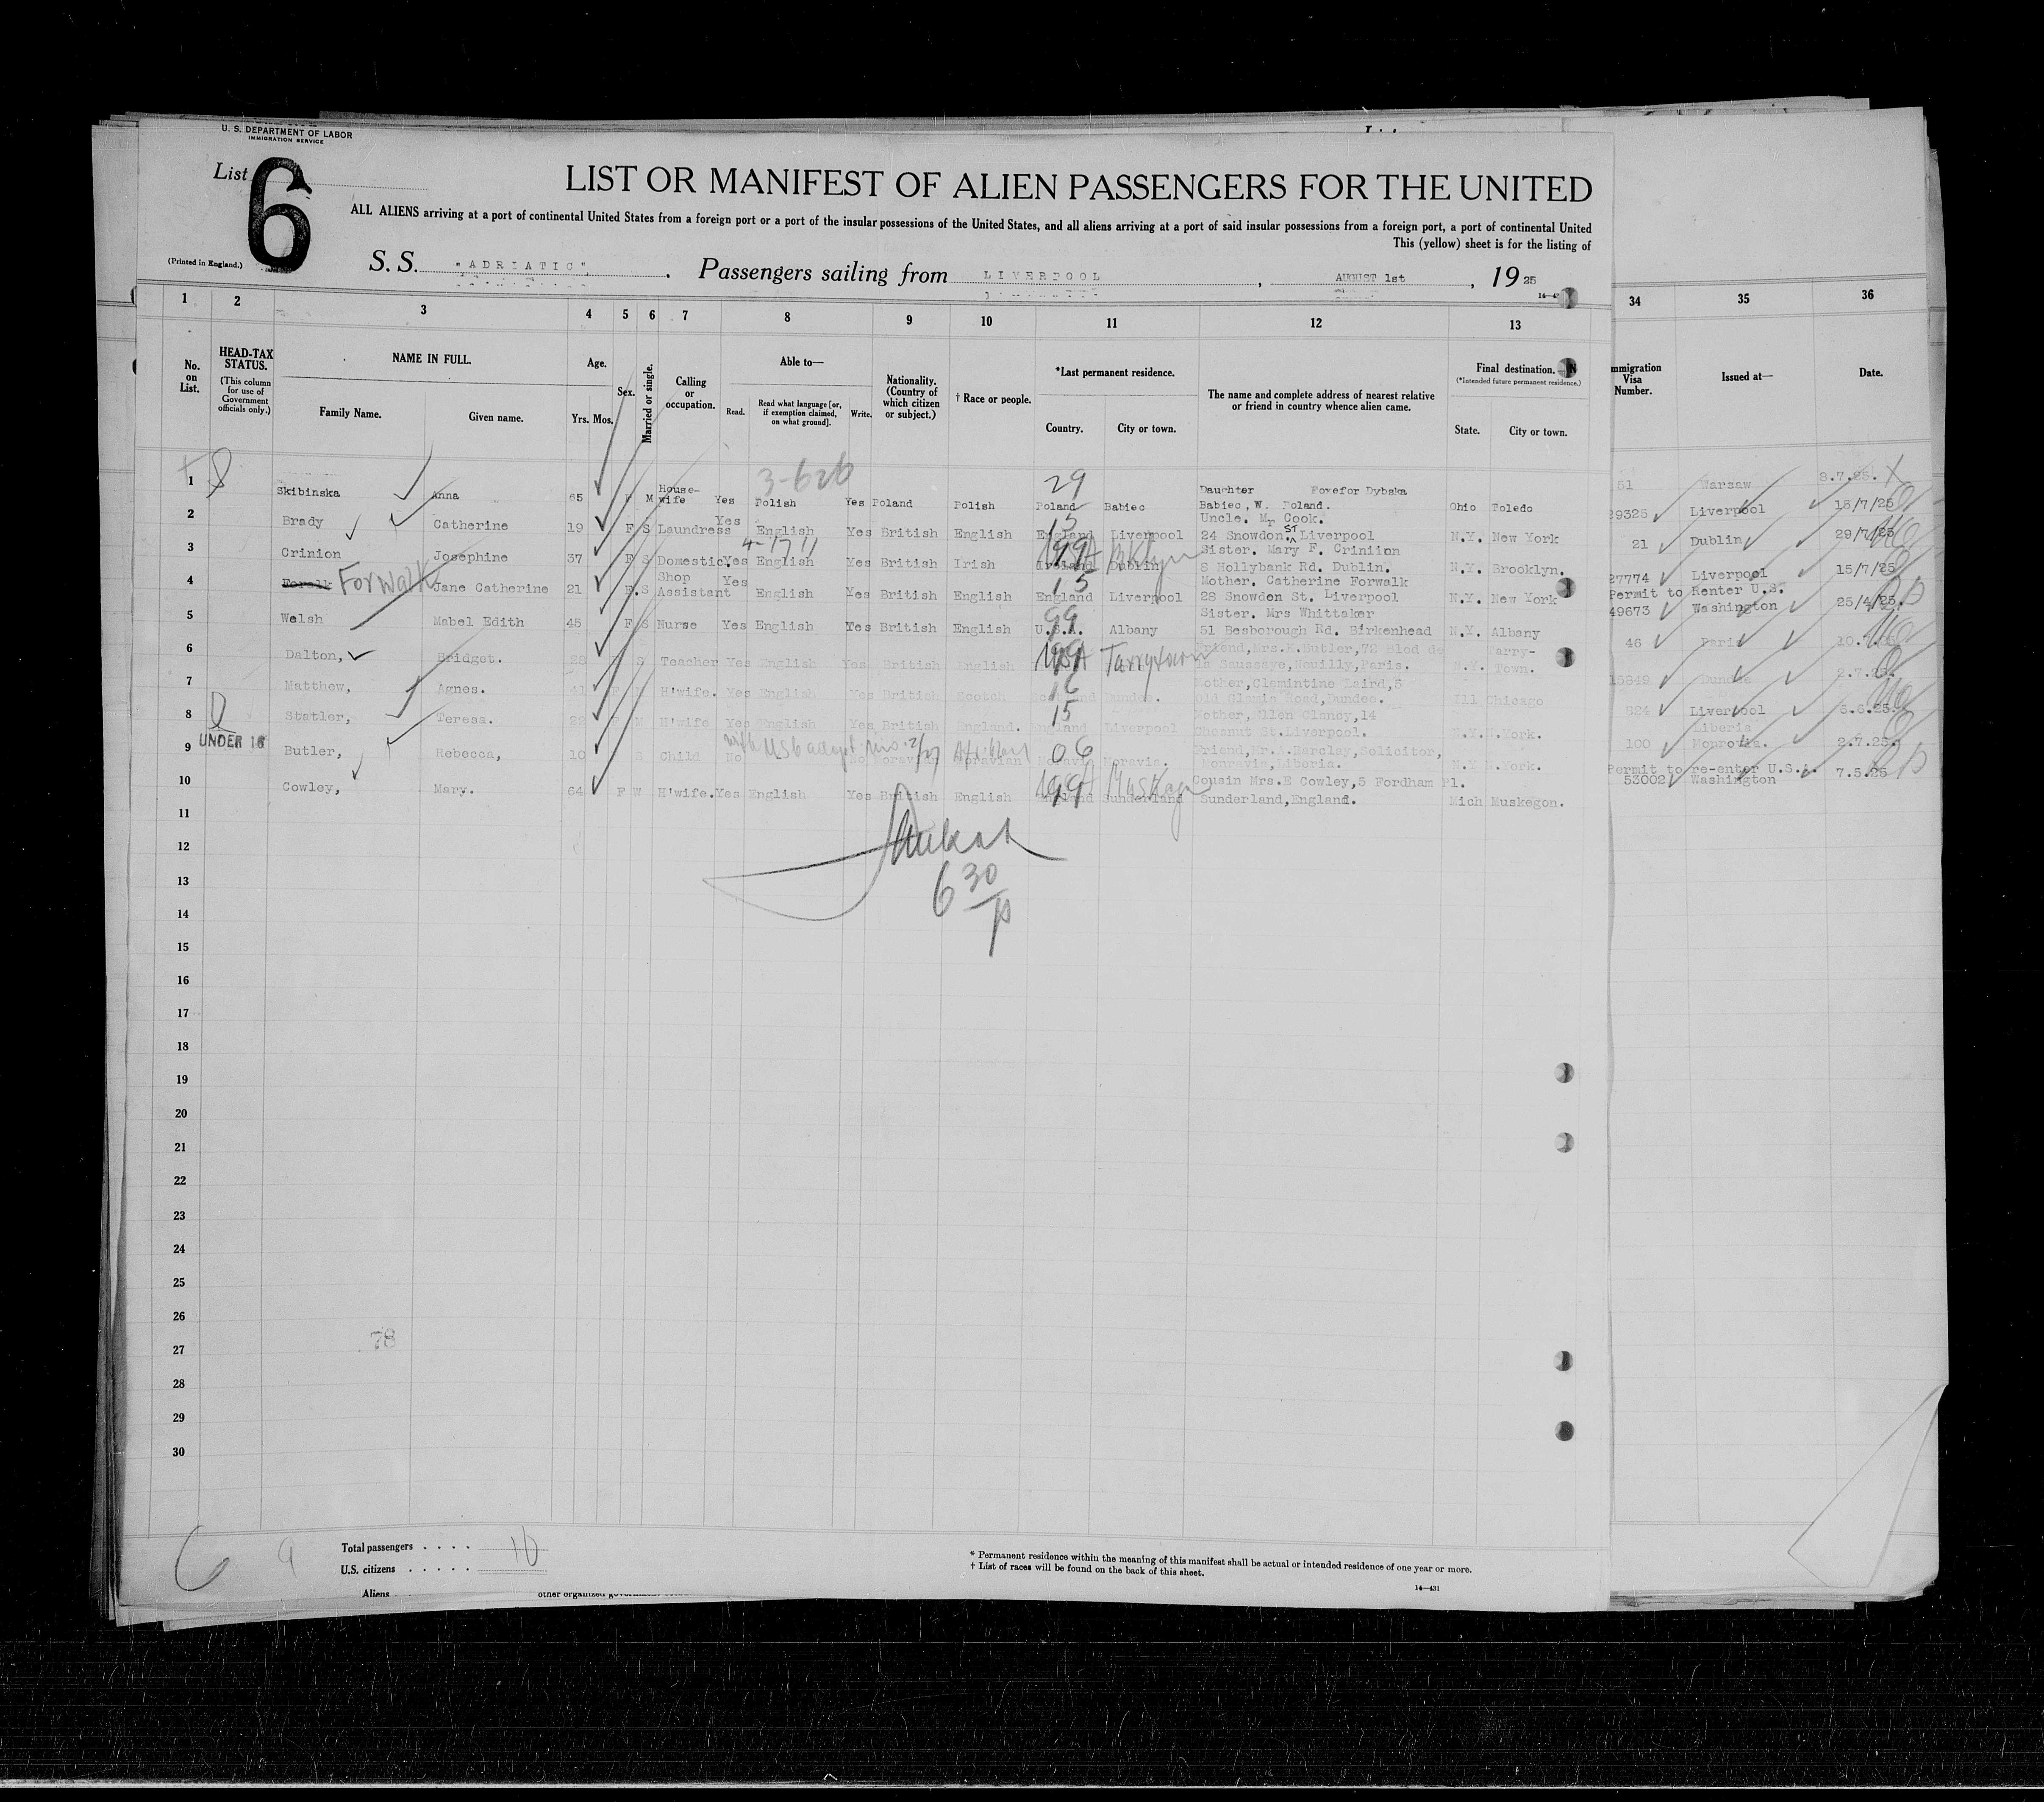 U. S. DEPARTMENT OF LABOR
IMMIGRATION SERVICE
List 6
LIST OR MANIFEST OF ALIEN PASSENGERS FOR THE UNITED
ALL ALIENS arriving at a port of continental United States from a foreign port or a port of the insular possessions of the United States, and all aliens arriving at a port of said insular possessions from a foreign port, a port of continental United
This (yellow) sheet is for the listing of
(Printed in England.)
S. S. "ADRIATIC" . Passengers sailing from LIVERPOOL , AUGUST 1st , 1925
1 2 3 4 5 6 7 8 9 10 11 12 13 34 35 36
No. on List.
HEAD-TAX STATUS.
(This column for use of Government officials only.)
NAME IN FULL.
Family Name. Given name.
Age.
Yrs. Mos.
Sex.
Married or single.
Calling or occupation.
Able to—
Read. Read what language [or, if exemption claimed, on what ground]. Write.
Nationality. (Country of which citizen or subject.)
† Race or people.
*Last permanent residence.
Country. City or town.
The name and complete address of nearest relative or friend in country whence alien came.
Final destination.
(*Intended future permanent residence.)
State. City or town.
mmigration Visa Number.
Issued at—
Date.
3-626 29
1 Skibinska Anna 65 F M House-wife Yes Polish Yes Poland Polish Poland Babiec Daughter Fovefor Dybska Babiec, W. Poland. Ohio Toledo 51 Warsaw 8.7.25.
15
2 Brady Catherine 19 F S Laundress Yes English Yes British English England Liverpool Uncle. Mr Cook. 24 Snowdon ST. Liverpool N.Y. New York 29325 Liverpool 15/7/25
4-1711 99 Bklyn
3 Crinion Josephine 37 F S Domestic. Yes English Yes British Irish Ireland Dublin Sister. Mary F. Criniion 8 Hollybank Rd. Dublin. N.Y. Brooklyn. 21 Dublin 29/7/25
15
4 Foralk Forwalk Jane Catherine 21 F. S Shop Assistant Yes English Yes British English England Liverpool Mother. Catherine Forwalk 28 Snowdon St. Liverpool N.Y. New York 27774 Liverpool 15/7/25
99
5 Welsh Mabel Edith 45 F S Nurse Yes English Yes British English U.S.A. Albany Sister. Mrs Whittaker 51 Besborough Rd. Birkenhead N.Y. Albany Permit to Renter U.S. 49673 Washington 25/4/25.
99 Tarrytown
6 Dalton, Bridget. 28 S Teacher Yes English Yes British English Friend, Mrs.E.Butler, 72 Blod de la Saussaye, Neuilly, Paris. N.Y. Tarry-Town. 46 Paris
16
7 Matthew, Agnes. 41 F H'wife. Yes English Yes British Scotch Scotland Dundee. Mother, Clemintine Laird, 5 Old Glamis Road, Dundee. Ill Chicago 15849 Dundee 2.7.25.
15
8 Statler, Teresa. 22 F M H'wife Yes English Yes British England. England Liverpool Mother, Ellen Clancy, 14 Chesnut St. Liverpool. N.Y. N.York. 824 Liverpool 6.6.25.
UNDER 16 06
9 Butler, Rebecca, 10 S Child No No Moravian Moravian Monravia Moravia. Friend, Mr.A.Barclay, Solicitor, Monravia, Liberia. N.Y N.York. 100 Liberia Monrovia. 2.7.25.
99
10 Cowley, Mary. 64 F W H'wife. Yes English Yes British English England Sunderland Cousin Mrs.E Cowley, 5 Fordham Pl. Sunderland, England. Mich Muskegon. Permit to re-enter U.S.A. 53002 Washington 7.5.25
11
12
6 30/p
13
14
15
16
17
18
19
20
21
22
23
24
25
26
78
27
28
29
30
6 9
Total passengers . . . . 10
U.S. citizens . . . . .
Aliens
* Permanent residence within the meaning of this manifest shall be actual or intended residence of one year or more.
† List of races will be found on the back of this sheet.
14—431